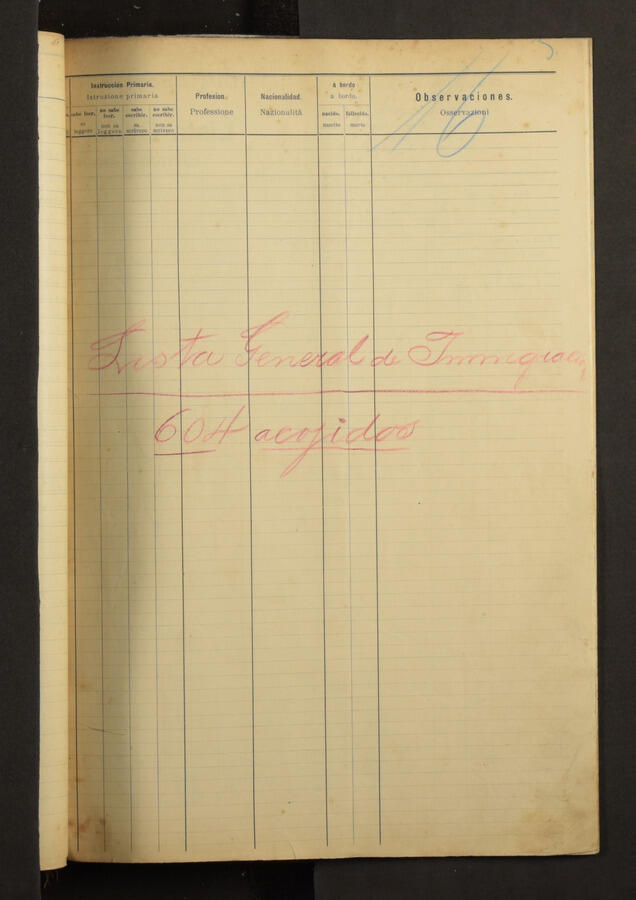 16
Instruccion Primaria.
Istruzione primaria
Profesion.
Professione
Nacionalidad.
Nazionalità
á bordo
a bordo.
Observaciones.
Osservazioni
sabe leer.
sa leggere
no sabe leer.
non sa leggere
sabe escribir.
sa scrivere
no sabe escribir.
non sa scrivere
nacido.
nascito
fallecido.
morto
Lista General de Inmigración
604 acojidos